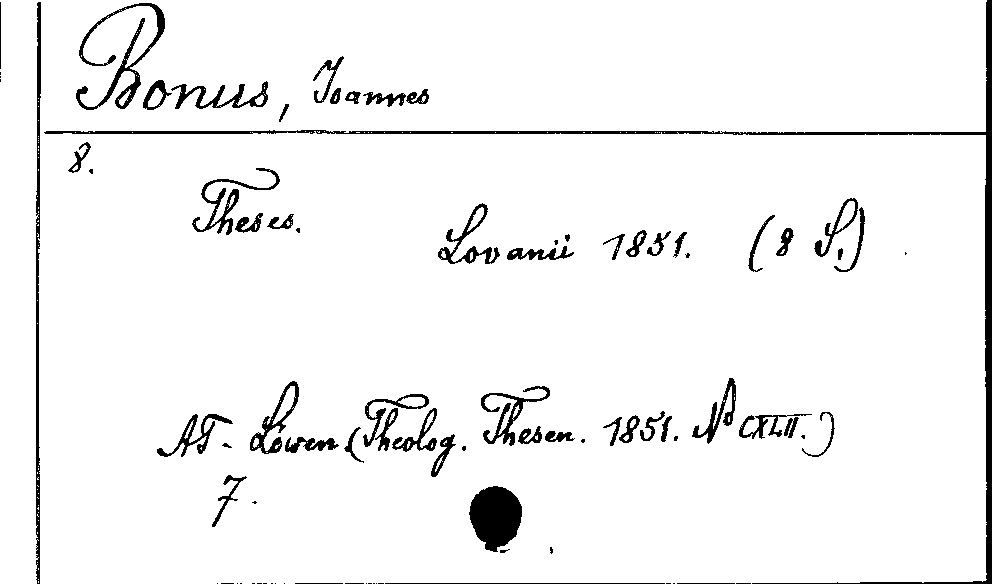 Bonus, Joannes
8.
Theses.
Lovanii 1851. (8 S.)
AT - Löwen (Theolog. Thesen. 1851. No CXLII.)
7.